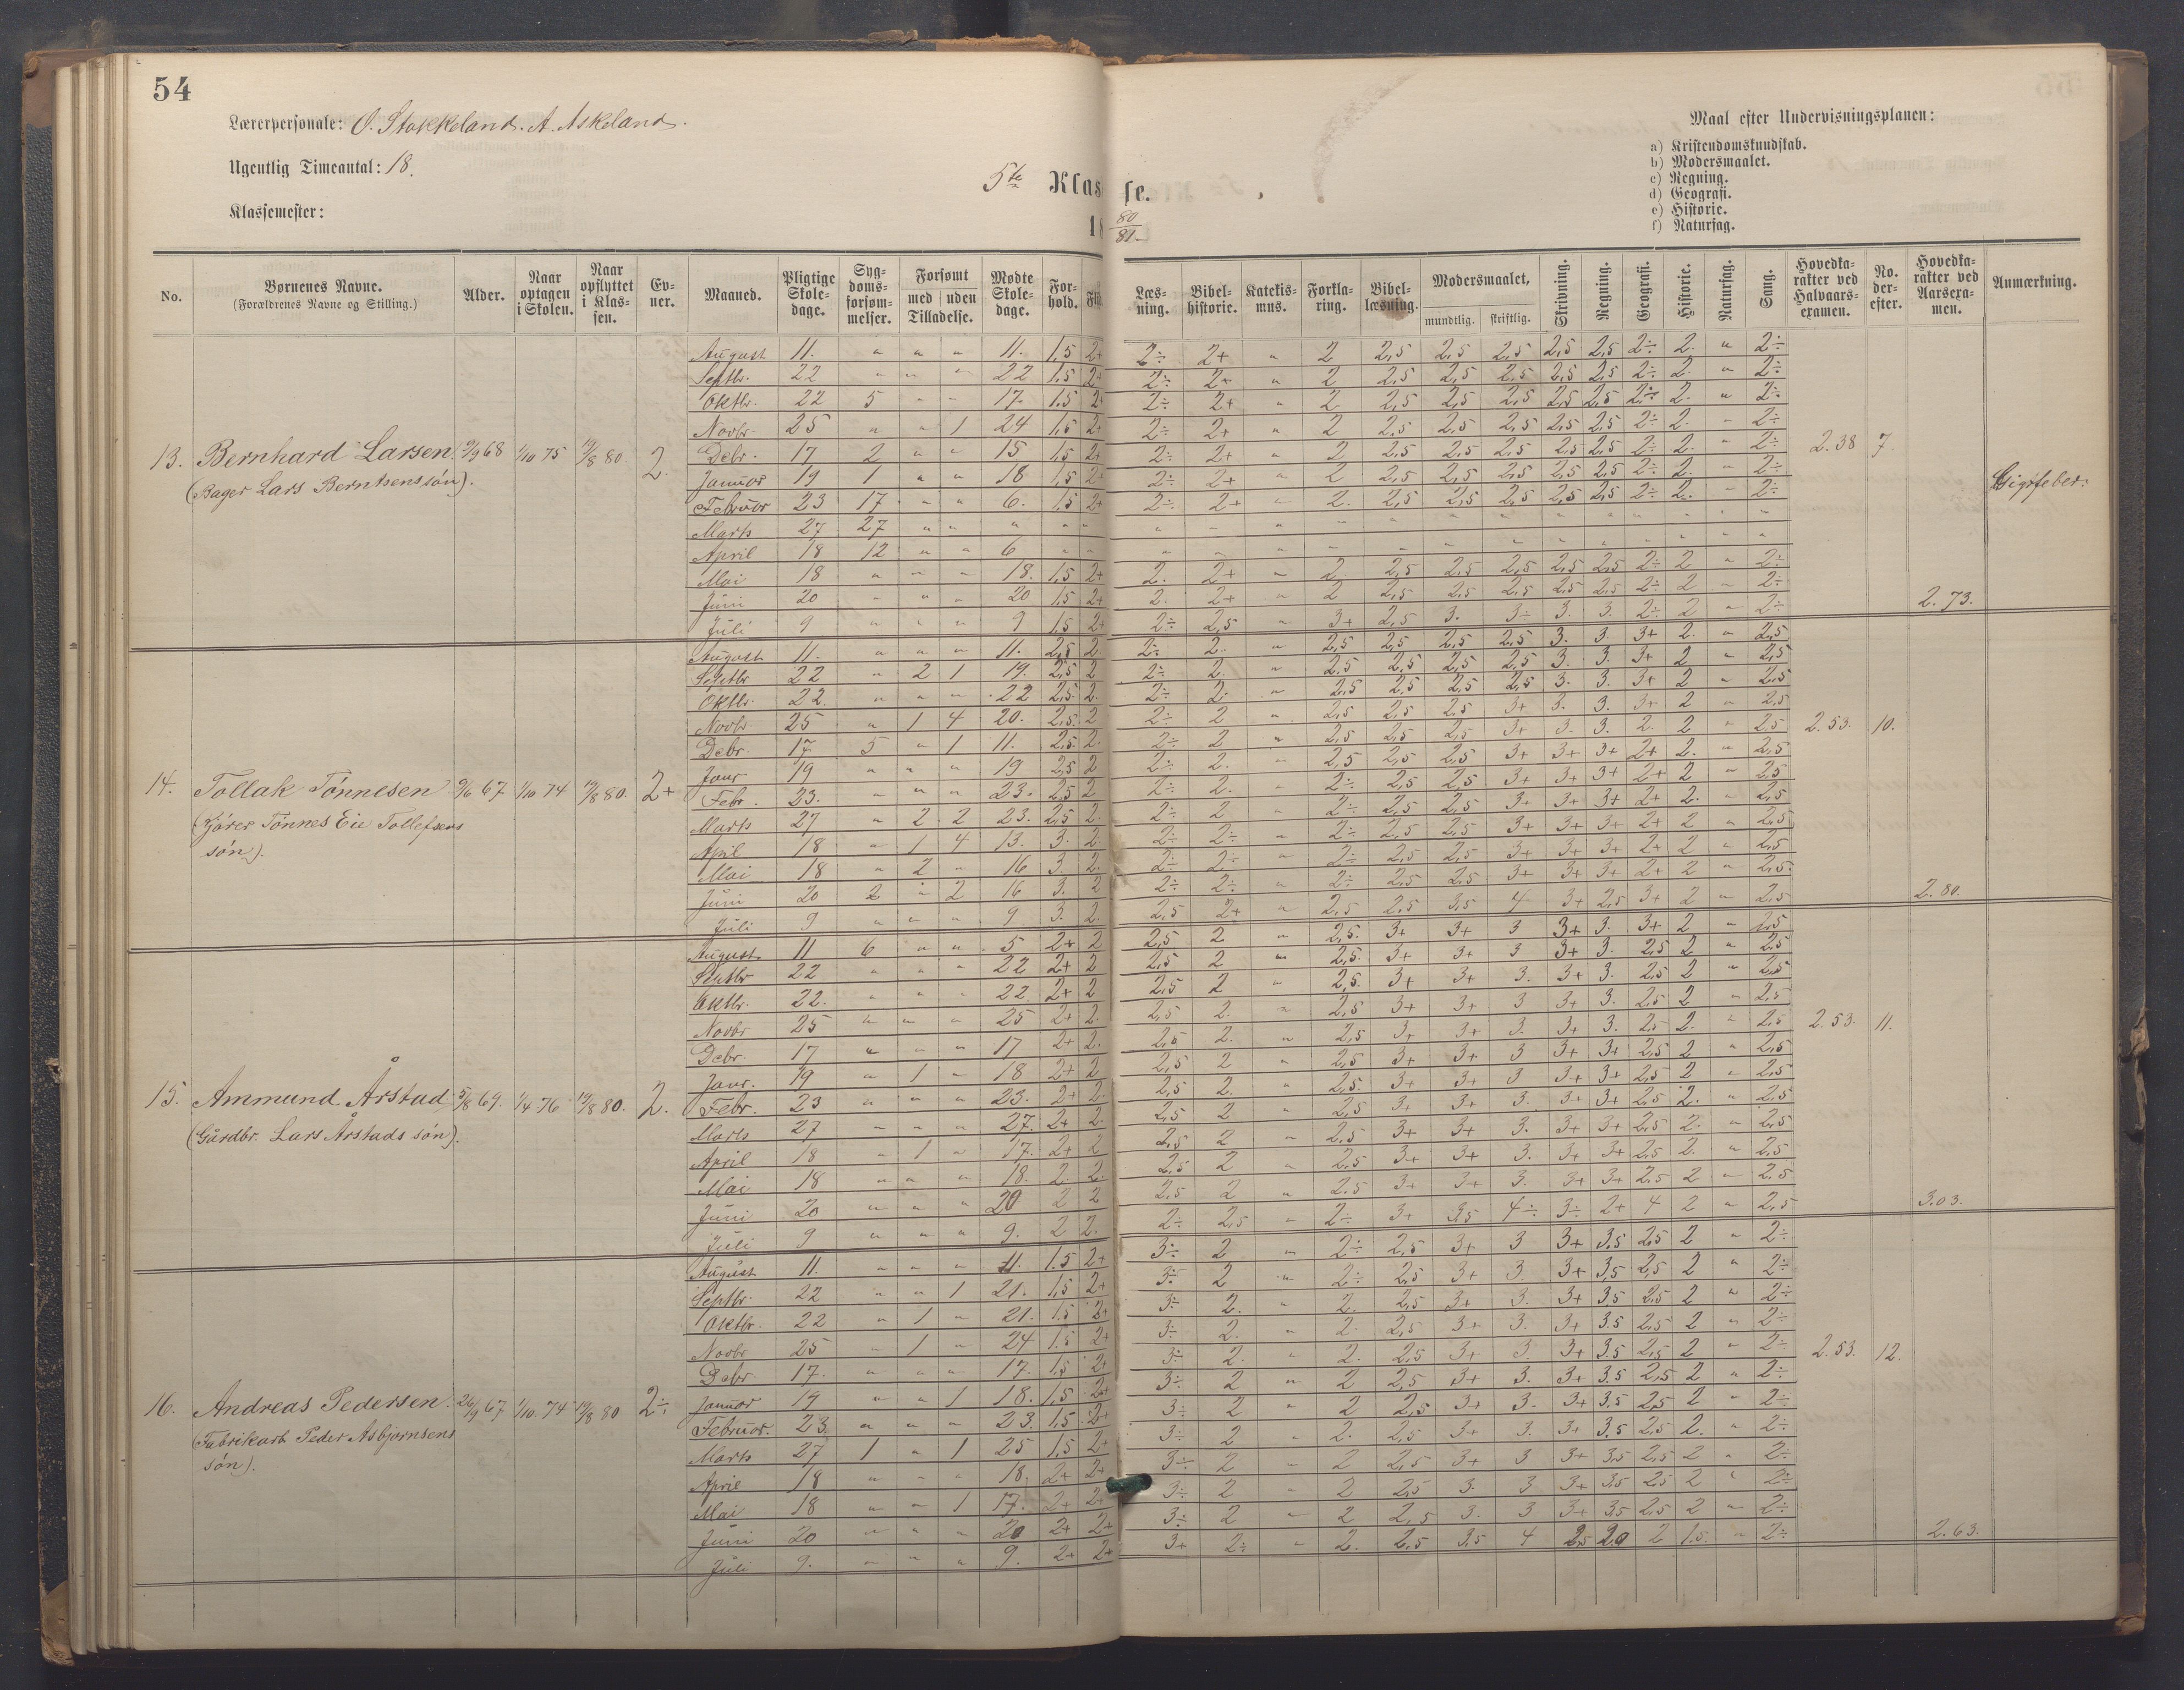 54
Lærerpersonale: O. Stokkeland. A. Askeland.
Ugentlig Timeantal: 18.
Klassemester:
5te Klasse.
18 80/81.
Maal efter Undervisningsplanen:
a) Kristendomskundskab.
b) Modersmaalet.
c) Regning.
d) Geografi.
e) Historie.
f) Naturfag.
No. Børnenes Navne. (Forældrenes Navne og Stilling.) Alder. Naar optagen i Skolen. Naar opflyttet i Klassen. Evner. Maaned. Pligtige Skoledage. Sygdomsforsømmelser. Forsømt med uden Tilladelse. Mødte Skoledage. Forhold. Læsning. Bibelhistorie. Katekismus. Forklaring. Bibellæsning. Modersmaalet, mundtlig. skriftlig. Skrivning. Regning. Geografi. Historie. Naturfag. Sang. Hovedkarakter ved Halvaarsexamen. No. derefter. Hovedkarakter ved Aarsexamen. Anmærkning.
August 11. " " " 11. 1,5 2+ 2÷ 2+ " 2 2,5 2,5 2,5 2,5 2,5 2÷ 2. " 2÷
Septbr. 22 " " " 22 1,5 2+ 2÷ 2+ " 2 2,5 2,5 2,5 2,5 2,5 2÷ 2. " 2÷
Oktbr. 22 5 " " 17. 1,5 2+ 2÷ 2+ " 2 2,5 2,5 2,5 2,5 2,5 2÷ 2. " 2÷
Novbr. 25 " " 1 24 1,5 2+ 2÷ 2+ " 2 2,5 2,5 2,5 2,5 2,5 2÷ 2. " 2÷
13. Bernhard Larsen. 68 1/10 75 19/8 80 2. Debr. 17 2 " " 15 1,5 2+ 2÷ 2+ " 2 2,5 2,5 2,5 2,5 2,5 2÷ 2. " 2÷ 2.38 7.
(Bager Lars Berntsens søn). Januar 19 1 " " 18 1,5 2+ 2÷ 2+ " 2 2,5 2,5 2,5 2,5 2,5 2÷ 2. " 2÷ Gigtfeber.
Februar 23 17 " " 6. 1,5 2+ 2÷ 2+ " 2. 2,5 2,5 2,5 2,5 2,5 2÷ 2. " 2÷
Marts 27 27 " " " " " " " " " " " " " " " " " "
April 18 12 " " 6 " " " " " " " " " " " " " " "
Mai 18 " " " 18. 1,5 2+ 2. 2+ " 2 2,5 2,5 2,5 2,5 2,5 2÷ 2 " 2÷
Juni 20 " " " 20 1,5 2+ 2. 2+ " 2 2,5 2,5 2,5 2,5 2,5 2÷ 2 " 2÷
Juli 9 " " " 9 1,5 2+ 2÷ 2,5 " 3+ 2,5 3. 3÷ 3. 3. 2÷ 2 " 2÷ 2.73.
August 11. " " " 11. 2,5 2. 2÷ 2. " 2,5 2,5 2,5 2,5 3. 3. 3+ 2. " 2,5
Septbr 22 " 2 1 19. 2,5 2 2÷ 2. " 2,5 2,5 2,5 2,5 3. 3. 3+ 2 " 2,5
Oktbr. 22. " " " 22 2,5 2. 2÷ 2. " 2,5 2,5 2,5 2,5 3. 3. 3+ 2 " 2,5
Novbr 25 " 1 4 20. 2,5. 2 2÷ 2 " 2,5 2,5 2,5 3+ 3. 3. 3+ 2 " 2,5
Debr. 17. 5 " 1 11. 2,5 2. 2÷ 2 " 2,5 2,5 2,5 3+ 3. 3. 2. 2 " 2,5 2.53. 10.
14. Tollak Tønnesen 67 1/10 74 19/8 80. 2+ Janr 19 " " " 19 2,5 2 2÷ 2. " 2,5 2,5 2,5 3+ 3+ 3+ 2+ 2. " 2,5
(Kjører Tønnes Eie Tollefsens Febr. 23. " " " 23. 2,5 2 2÷ 2. " 2÷ 2,5 2,5 3+ 3+ 3+ 2+ 2 " 2,5
søn). Marts 27 " 2 2 23. 2,5 2. 2÷ 2 " 2÷ 2,5 2,5 3+ 3+ 3+ 2+ 2. " 2,5
April 18 " 1 4 13. 3. 2. 2÷ 2÷ " 2÷ 2,5 2,5 3+ 3+ 3+ 2+ 2 " 2,5
Mai 18 " 2 " 16 3. 2. 2÷ 2÷ " 2÷ 2,5 2,5 3+ 3+ 3+ 2+ 2 " 2,5
Juni 20 2 " 2 16 3. 2 2÷ 2÷ " 2÷ 2,5 2,5 3+ 3+ 3+ 2+ 2 " 2,5.
Juli 9 " " " 9 3. 2. 2,5 2+ " 2,5 2,5 3,5 4 3+ 2,5 3+ 2 " 2,5 2.80.
August 11 6 " " 5 2+ 2 2,5 2 " 2,5. 3+ 3+ 3 3+ 3. 3+ 2 " 2,5
Septbr 22 " " " 22 2+ 2 2,5 2 " 2,5. 3+ 3+ 3 3+ 3. 2,5 2 " 2,5
Oktbr. 22. " " " 22. 2+ 2 2,5 2 " 2,5. 3+ 3+ 3. 3+ 3. 2,5 2 " 2,5
Novbr 25 " " " 25 2+ 2. 2,5 2. " 2,5 3+ 3+ 3 3+ 3. 2,5 2 " 2,5
Debr. 17 " " " 17 2+ 2. 2,5 2. " 2,5 3+ 3+ 3. 3+ 3. 2,5 2. " 2,5 2.53. 11.
Janr. 19 " 1 " 18 2+ 2 2,5 2 " 2,5 3+ 3+ 3 3+ 3+ 2,5 2 " 2,5
15. Ammund Årstad. 5/8 69. 1/4 76 19/8 80. 2. Febr. 23 " " " 23. 2+ 2. 2,5 2. " 2,5. 3+ 3+ 3 3+ 3+ 2,5 2 " 2,5
(Gårdbr. Lars Årstads søn). Marts 27 " " " 27. 2+ 2. 2,5 2 " 2,5 3+ 3+ 3. 3+ 3+ 2,5 2. " 2,5
April 18 " 1 " 17. 2+ 2 2,5 2 " 2,5 3+ 3+ 3. 3+ 3+ 2,5 2. " 2,5
Mai 18 " " " 18. 2. 2. 2,5 2 " 2,5 3+ 3+ 3. 3+ 3+ 2,5 2. " 2,5
Juni 20 " " " 20 2 2 2,5 2 " 2,5 3+ 3+ 3. 3+ 3+ 2,5 2 " 2,5
Juli 9 " " " 9. 2 2. 2÷ 2,5 " 2÷ 3+ 3,5 4÷ 3÷ 2+ 4 2 " 2,5 3.03.
August 11. " " " 11. 1.5 2+ 3÷ 2 " 2÷ 2,5 3+ 3 3+ 3,5 2,5 2 " 2÷
Septbr. 22 " " 1 21. 1,5 2+ 3÷ 2 " 2÷ 2,5 3+ 3. 3+ 3,5 2,5 2 " 2÷
Oktbr. 22 " 1 " 21. 1.5 2+ 3÷ 2. " 2. 2,5 3+ 3. 3+ 3.5 2,5 2 " 2÷
Novbr 25 " 1 " 24 1.5 2+ 3÷ 2. " 2. 2,5 3+ 3. 3+ 3.5 2,5 2 " 2÷
Debr. 17. " " " 17. 1,5 2+ 3÷ 2. " 2. 2,5 3+ 3 3+ 3.5 2,5 2 " 2÷ 2.53. 12.
16. Andreas Pedersen. 26/9 67 1/10 74 19/8 80 2÷ Januar 19 " " 1 18. 1,5 2+ 3÷ 2 " 2 2,5 3+ 3. 3+ 3.5 2,5 2 " 2÷
(Fabrikarb. Peder Asbjørnsens Februar. 23. " " " 23. 1.5 2+ 3÷ 2 " 2 2,5 3+ 3. 3+ 3.5 2,5 2 " 2÷
søn). Marts 27 1 " 1 25 1,5 2+ 3÷ 2 " 2. 2,5 3+ 3. 3+ 3,5 2,5 2. " 2÷
April 18 " " " 18. 2+ 2+ 3÷ 2 " 2 2,5 3+ 3 3+ 3,5 2,5 2 " 2÷
Mai 18 " " 1 17. 2+ 2+ 3÷ 2 " 2 2,5 3. 3 3+ 3,5 2,5 2 " 2÷
Juni 20 " " " 20 2+ 2+ 3÷ 2 " 2 2,5 3. 3 3+ 3,5 2,5 2 " 2÷
Juli 9. " " " 9. 2+ 2+ 3+ 2÷ " 2. 2,5 3,5 4 2,5 2 1.5. " 2÷ 2.63.